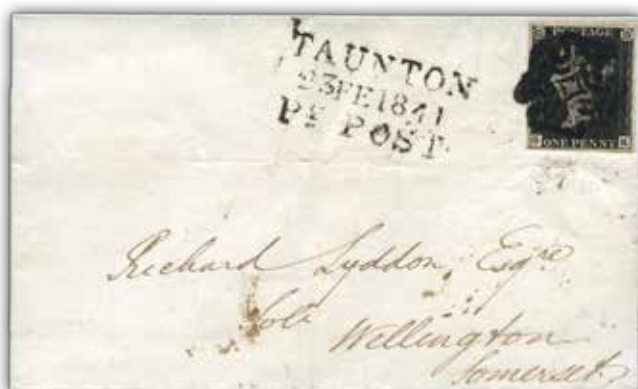 TAUNTON
23FE1841
Py POST
POSTAGE
ONE PENNY
Richard Lyddon, Esqre
Solr
Wellington
Somerset